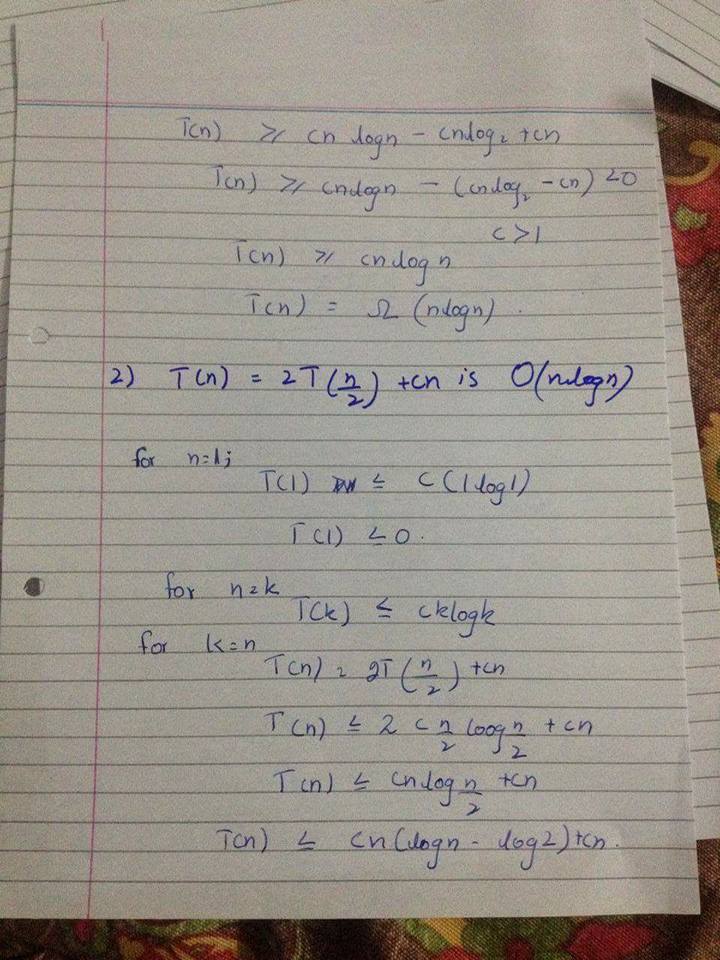 T(n) ≥ cn logn - cnlog₂ +cn
T(n) ≥ cnlogn - (cnlog₂ -cn) <0
c>1
T(n) ≥ cnlogn
T(n) = Ω (nlogn).
2) T(n) = 2T(n/2) +cn is O(nlogn)
for n=1;
T(1) ≤ C(1log1)
T(1) ≤0.
for n=k
T(k) ≤ cklogk
for k=n
T(n) = 2T(n/2) +cn
T(n) ≤ 2 c n/2 loog n/2 + cn
T(n) ≤ cnlog n/2 +cn
T(n) ≤ cn(logn - log2)+cn.